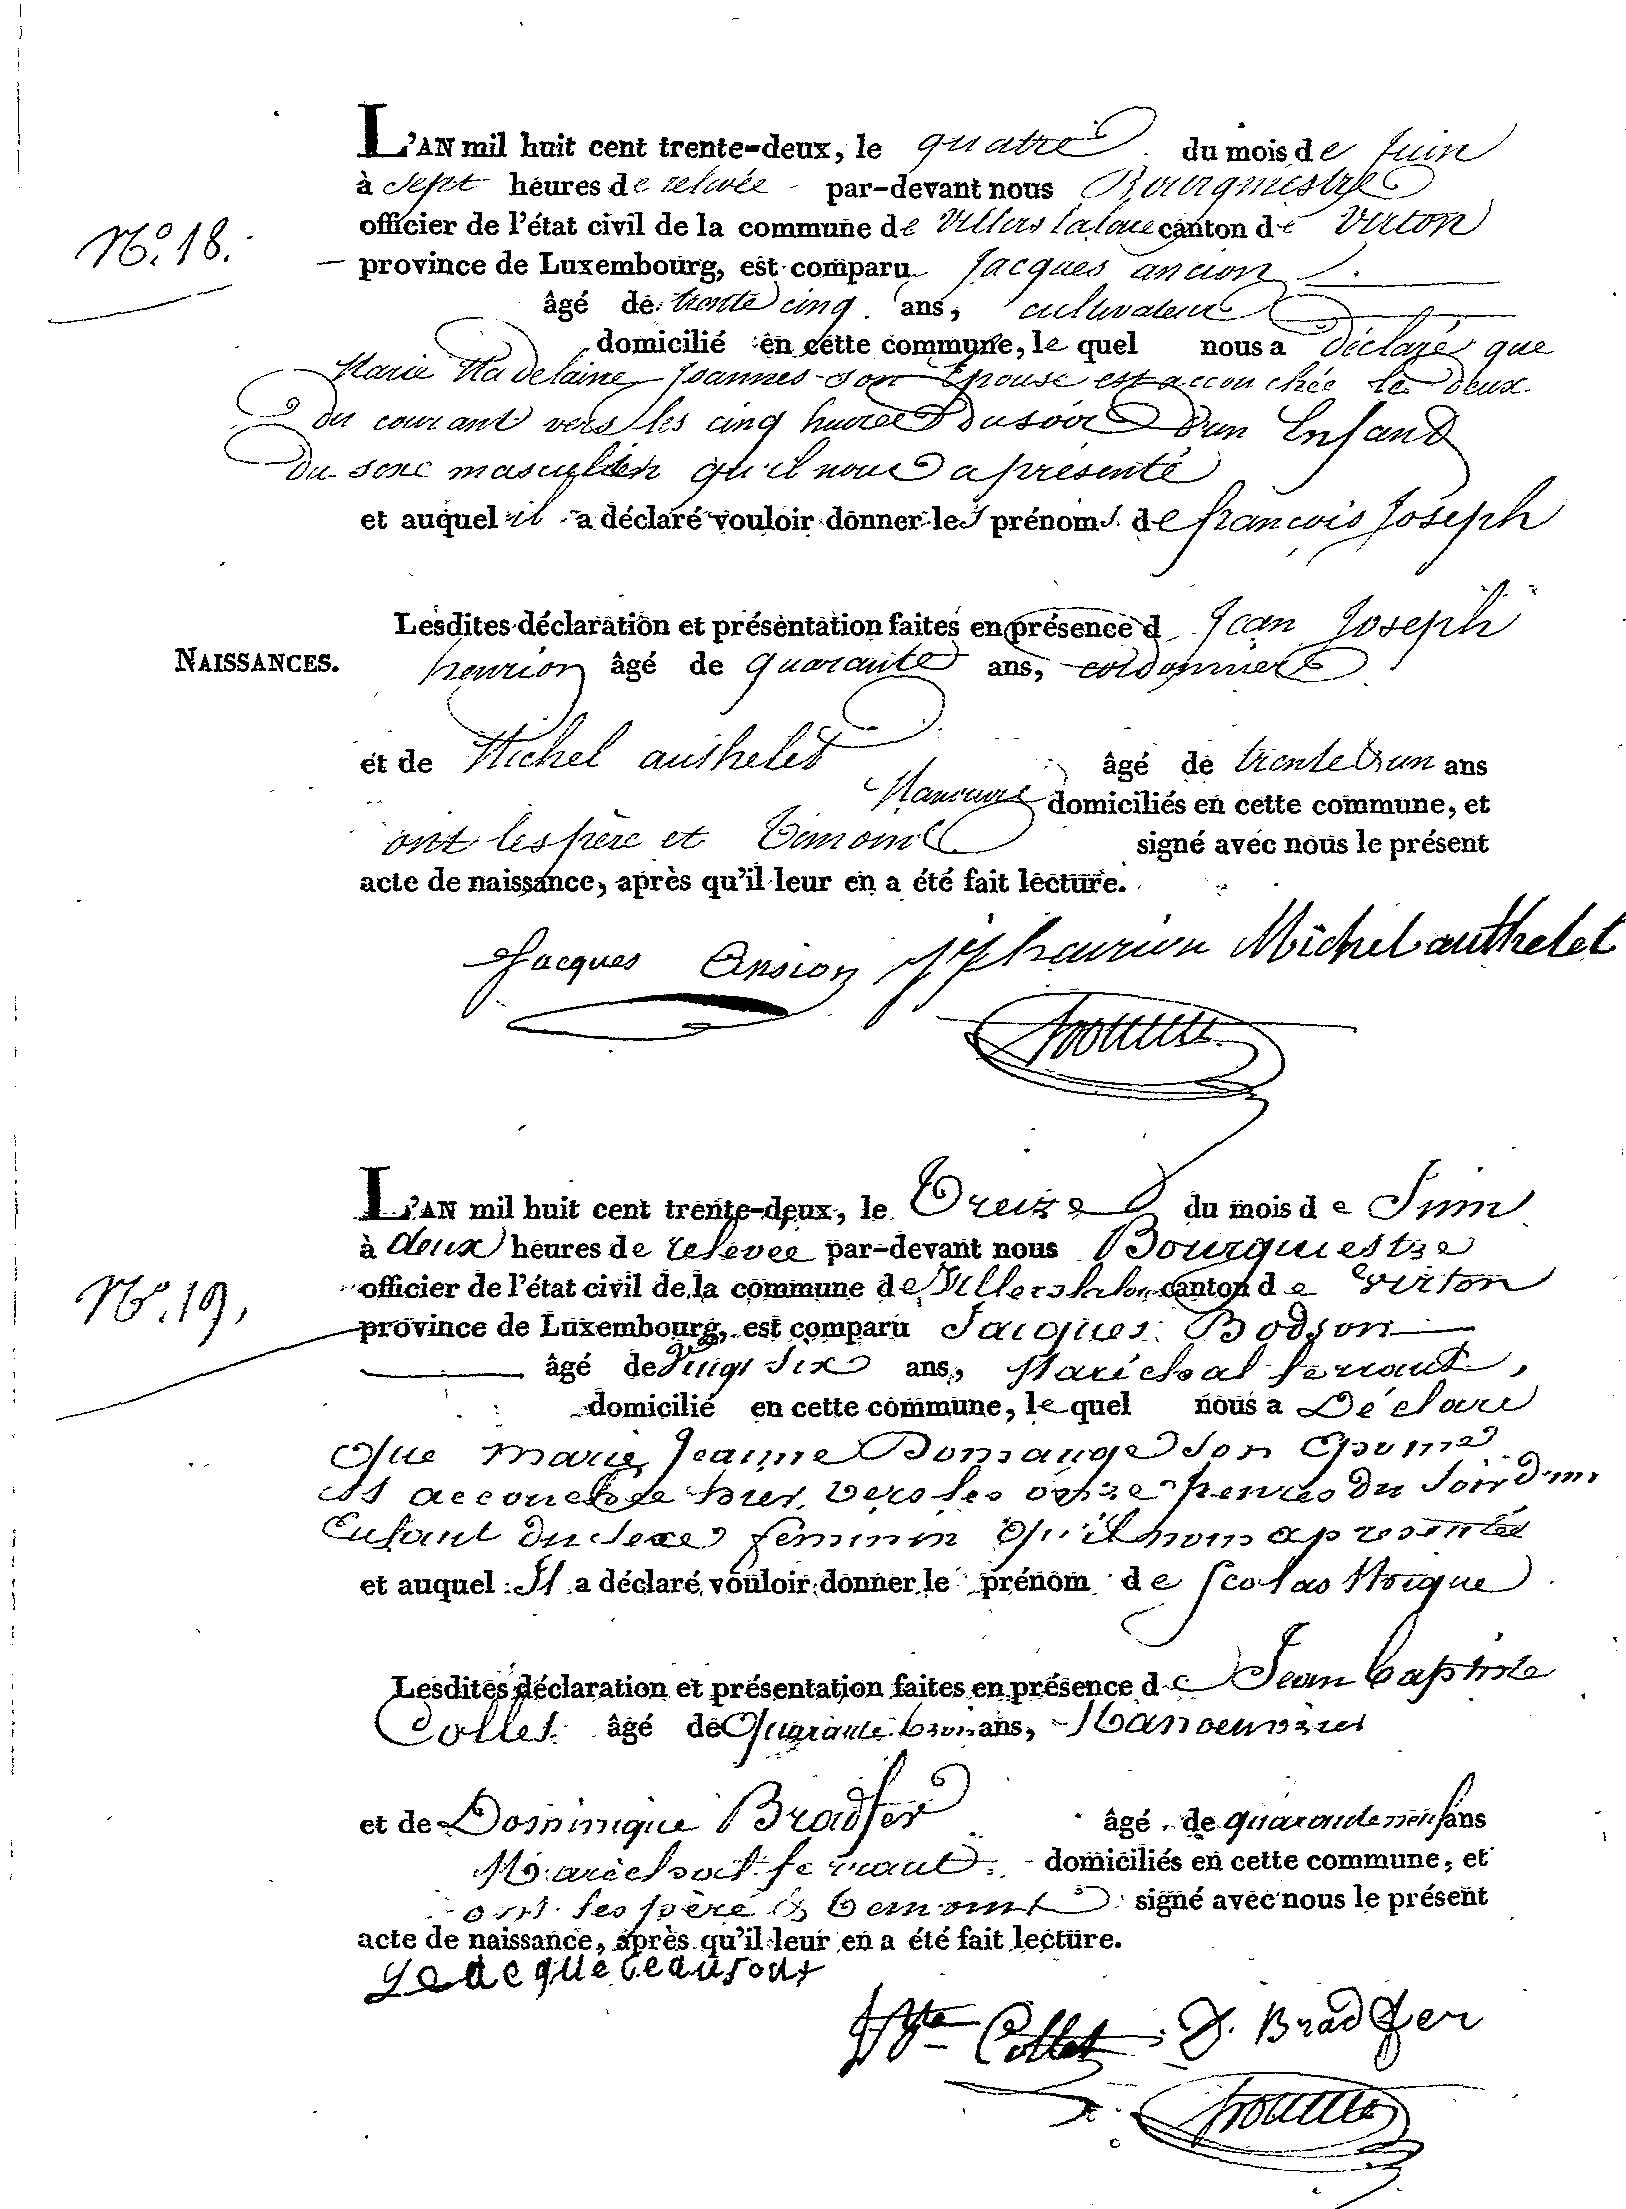 L'AN mil huit cent trente-deux, le quatre du mois de Juin
à Sept heures de relevée par-devant nous Bourgmestre
N.º 18.
officier de l'état civil de la commune de Villers laloue canton de Virton
province de Luxembourg, est comparu Jacques ancion
âgé de trente cinq ans, cultivateur
domicilié en cette commune, le quel nous a déclaré que
Marie Madelaine Joannes son Epouse est accouchée le deux
du courant vers les cinq heures du soir d'un Enfant
du sexe masculin qu'il nous a présenté
et auquel il a déclaré vouloir donner les prénoms de francois Joseph
Lesdites déclaration et présentation faites en présence d Jean Joseph
NAISSANCES.
heurion âgé de quarante ans, cordonnier
et de Michel authelet âgé de trente & un ans
Manouvre domiciliés en cette commune, et
ont les père et témoins signé avec nous le présent
acte de naissance, après qu'il leur en a été fait lecture.
Jacques Ansion Jph heurion Michel authelet
L'AN mil huit cent trente-deux, le Treize du mois de Juin
à deux heures de relevée par-devant nous Bourgmestre
N.º 19,
officier de l'état civil de la commune de Villers laloue canton de virton
province de Luxembourg, est comparu Jacques Bodson
âgé de vingt Six ans, Maréchal ferrant,
domicilié en cette commune, le quel nous a Déclaré
Que marie Jeanne Domange Son Epouse
est accouchée hier vers les onze heures du Soir d'un
Enfant du Sexe feminin Qu'il nous a présenté
et auquel Il a déclaré vouloir donner le prénom de Scolastique
Lesdites déclaration et présentation faites en présence de Jean baptiste
Collet âgé de Quarante trois ans, Manoeuvrier
et de Dominique Bradfer âgé de quarante neuf ans
Maréchal ferrant domiciliés en cette commune, et
ont les père & temoins signé avec nous le présent
acte de naissance, après qu'il leur en a été fait lecture.
Jbte Collet D. Bradfer